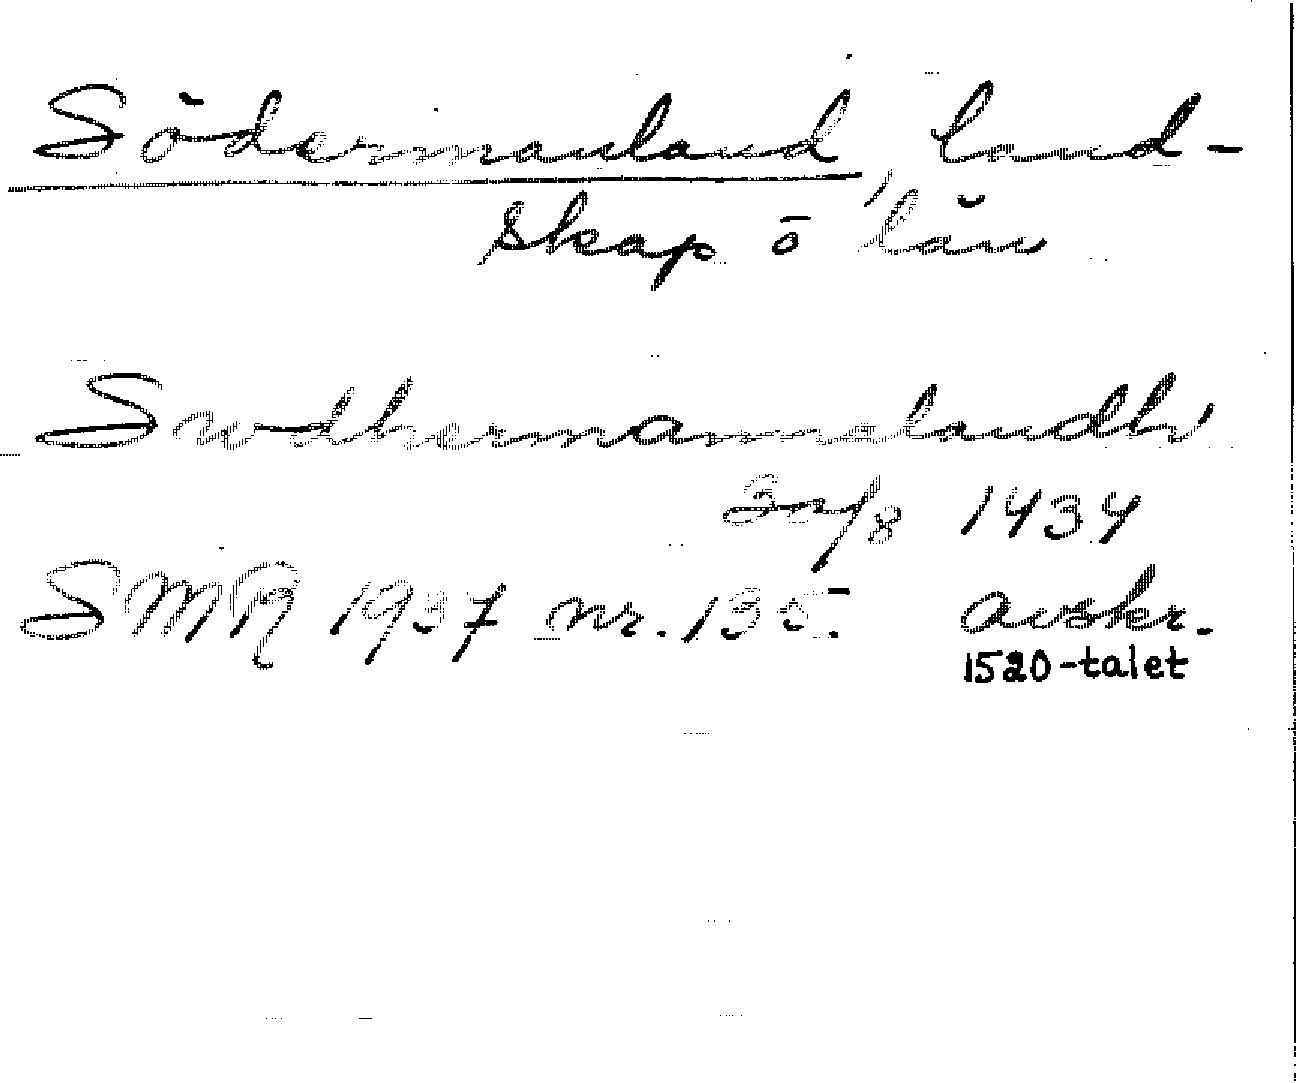 Södermanland, land-
skap o län
Swdhermannalandh
30/8 1434
SMR 1937 nr. 135. avskr.
1520-talet